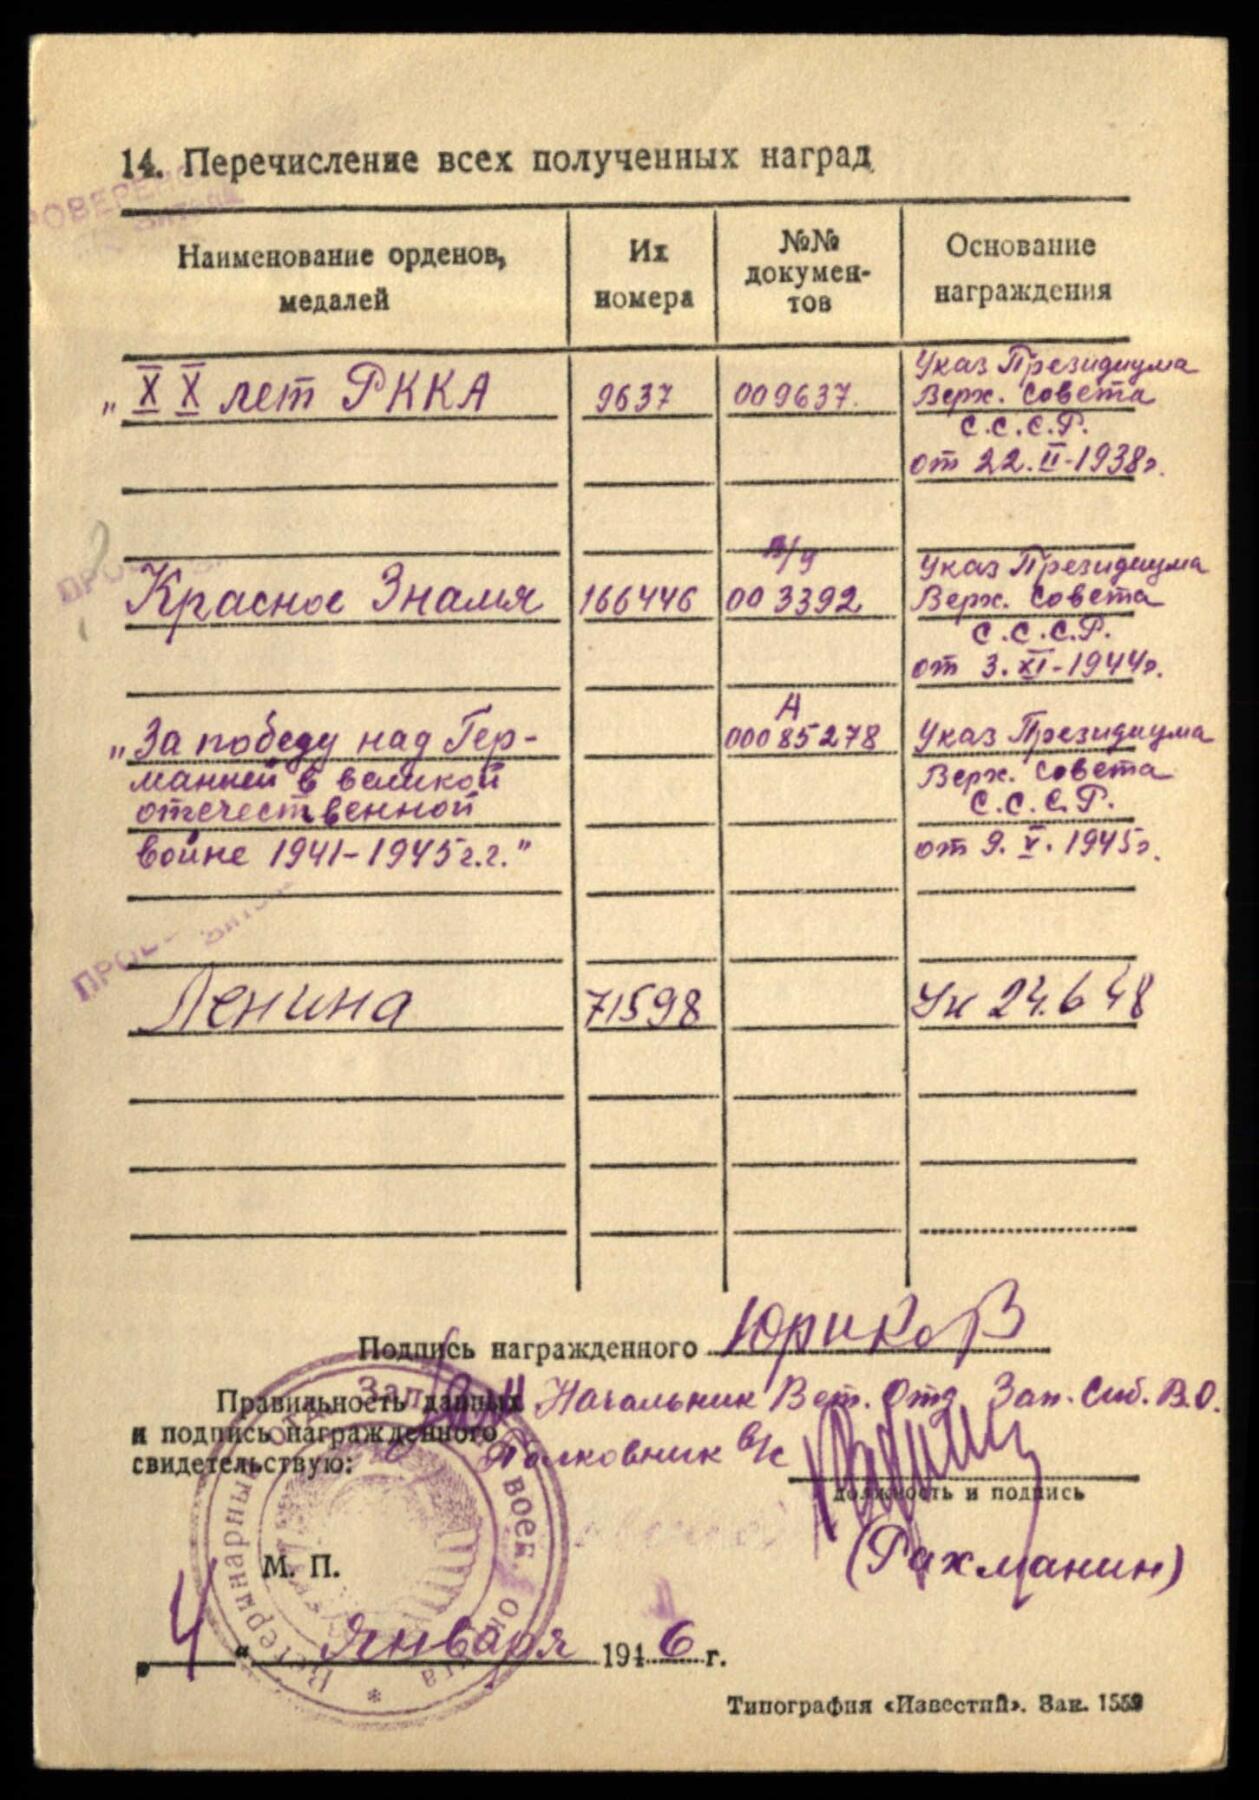 ПРОВЕРЕНО
14. Перечисление всех полученных наград
Наименование орденов, медалей
Их номера
№№ докумен-
тов
Основание награждения
„XX лет РККА
9637
009637.
Указ Президиума
Верх. Совета
С.С.С.Р.
от 22.II-1938г.
Красное Знамя
166446
в/у
003392
Указ Президиума
Верх. Совета
С.С.С.Р.
от 3.XI-1944г.
„За победу над Гер-
манией в великой
отечественной
войне 1941-1945г.г."
А
00085278
Указ Президиума
Верх. Совета
С.С.С.Р.
от 9.V.1945г.
Ленина
71598
Ук 24.6 48
Подпись награжденного Юриков
Правильность данных
и подпись награжденного
свидетельствую:
Начальник Вет. Отд. Зап. Сиб. В.О.
Полковник в/с
должность и подпись
(Рахманин)
М. П.
„4" января 1946 г.
Ветеринарный отд. Зап. воен. округа
Типография «Известий». Зак. 1559